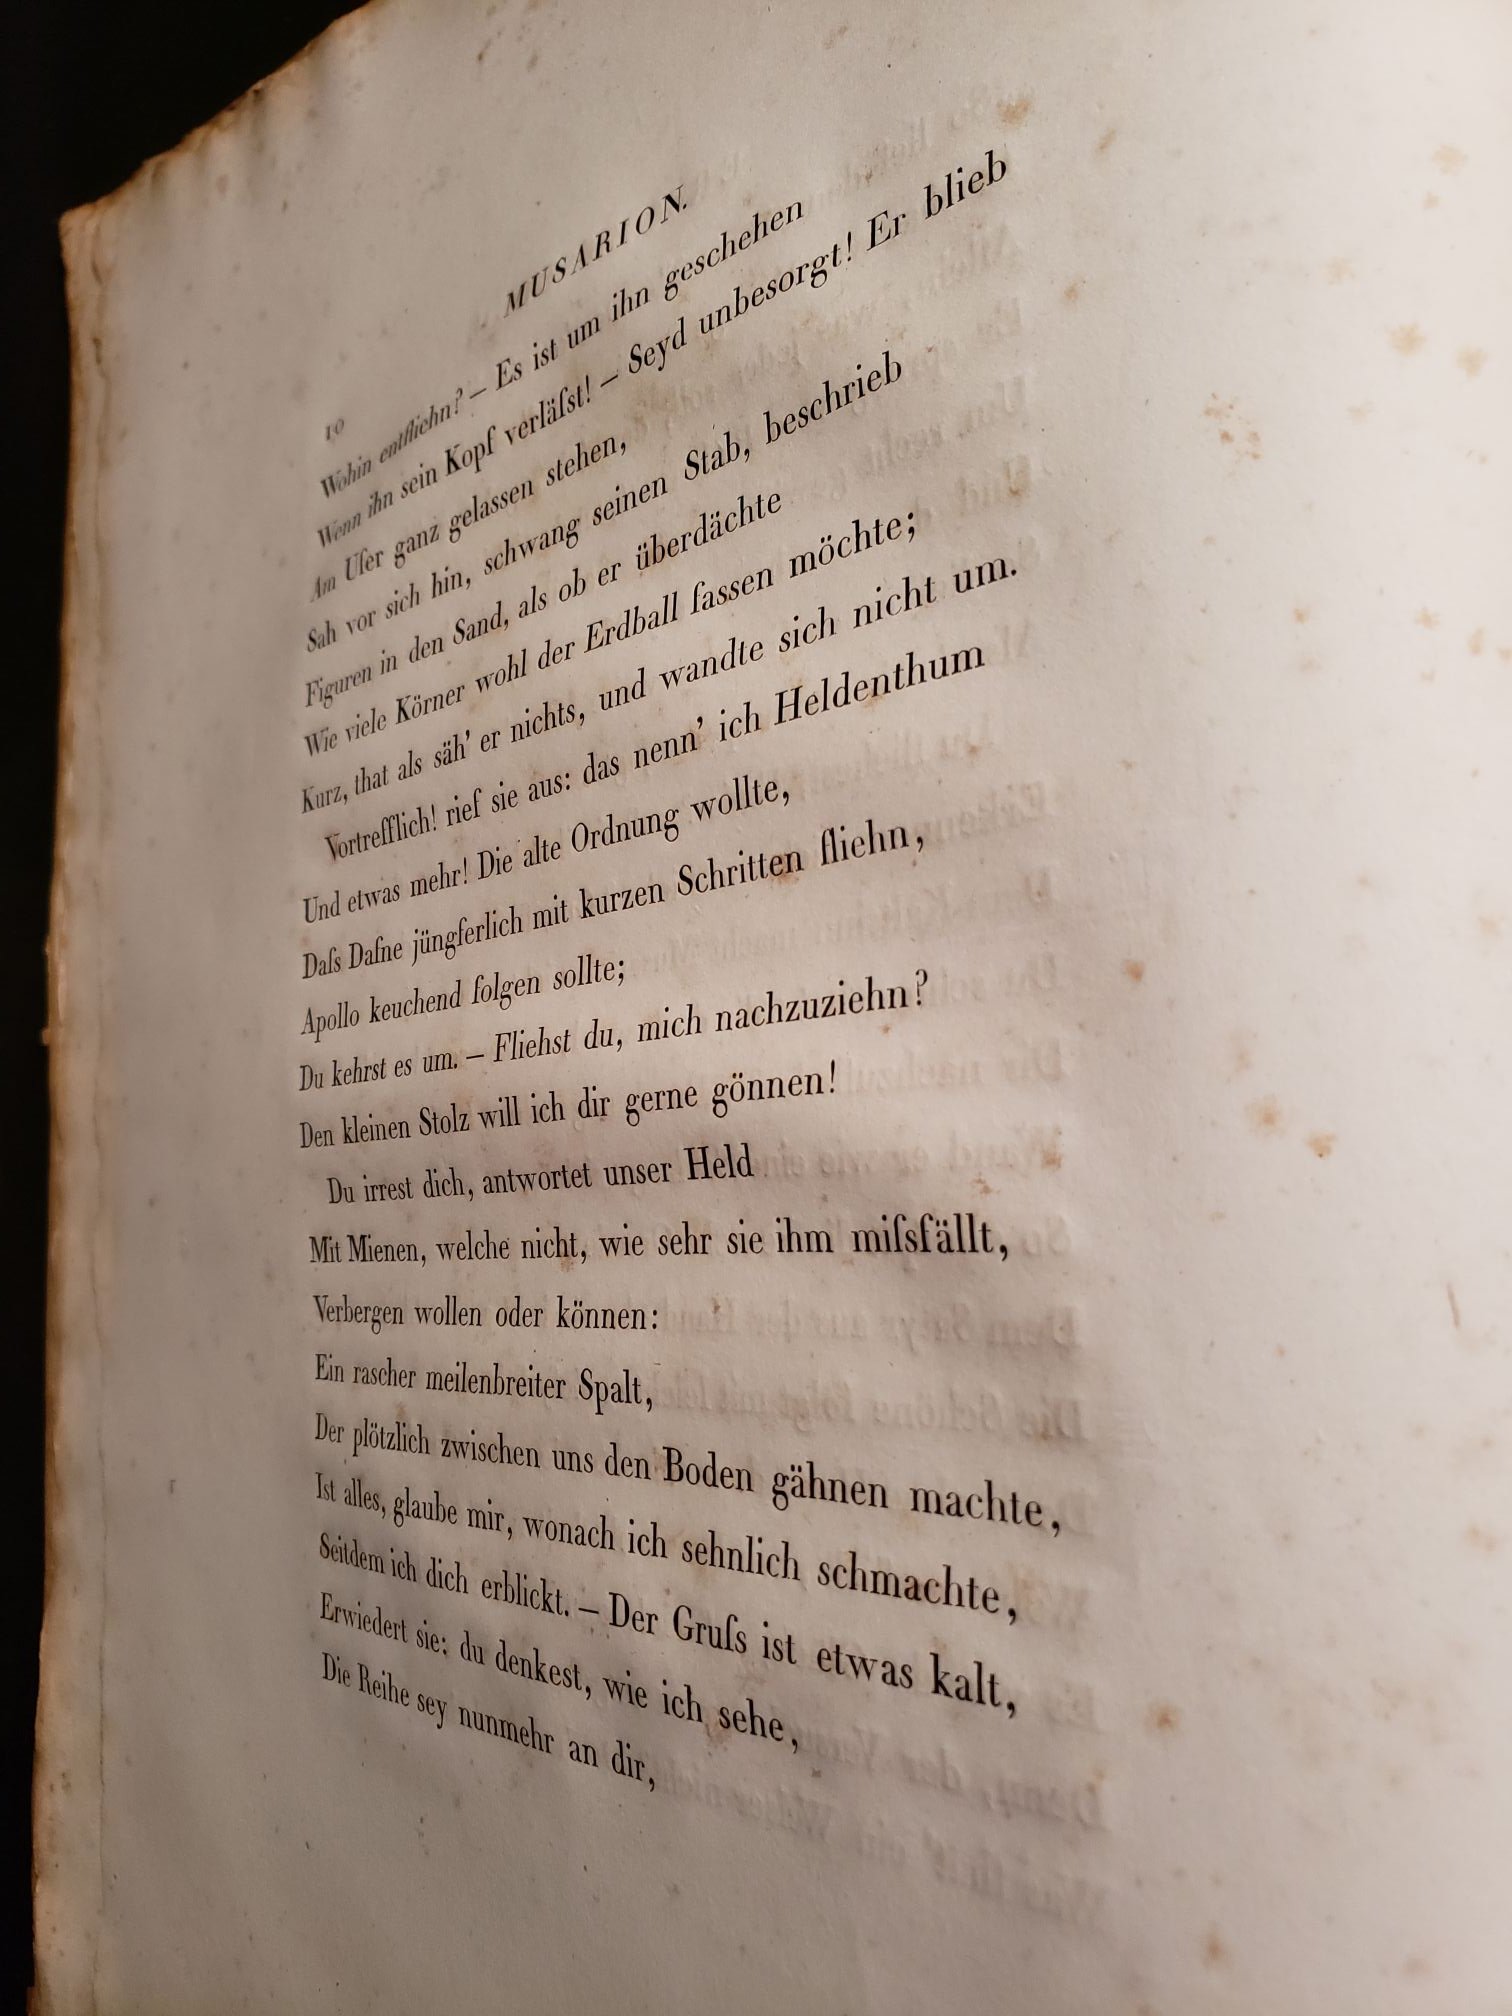 10
MUSARION.
Wohin entfliehn? – Es ist um ihn geschehen
Wenn ihn sein Kopf verläſst! – Seyd unbesorgt! Er blieb
Am Ufer ganz gelassen stehen,
Sah vor sich hin, schwang seinen Stab, beschrieb
Figuren in den Sand, als ob er überdächte
Wie viele Körner wohl der Erdball fassen möchte;
Kurz, that als säh' er nichts, und wandte sich nicht um.
Vortrefflich! rief sie aus: das nenn' ich Heldenthum
Und etwas mehr! Die alte Ordnung wollte,
Daſs Dafne jüngferlich mit kurzen Schritten fliehn,
Apollo keuchend folgen sollte;
Du kehrst es um. – Fliehst du, mich nachzuziehn?
Den kleinen Stolz will ich dir gerne gönnen!
Du irrest dich, antwortet unser Held
Mit Mienen, welche nicht, wie sehr sie ihm miſsfällt,
Verbergen wollen oder können:
Ein rascher meilenbreiter Spalt,
Der plötzlich zwischen uns den Boden gähnen machte,
Ist alles, glaube mir, wonach ich sehnlich schmachte,
Seitdem ich dich erblickt. – Der Gruſs ist etwas kalt,
Erwiedert sie: du denkest, wie ich sehe,
Die Reihe sey nunmehr an dir,